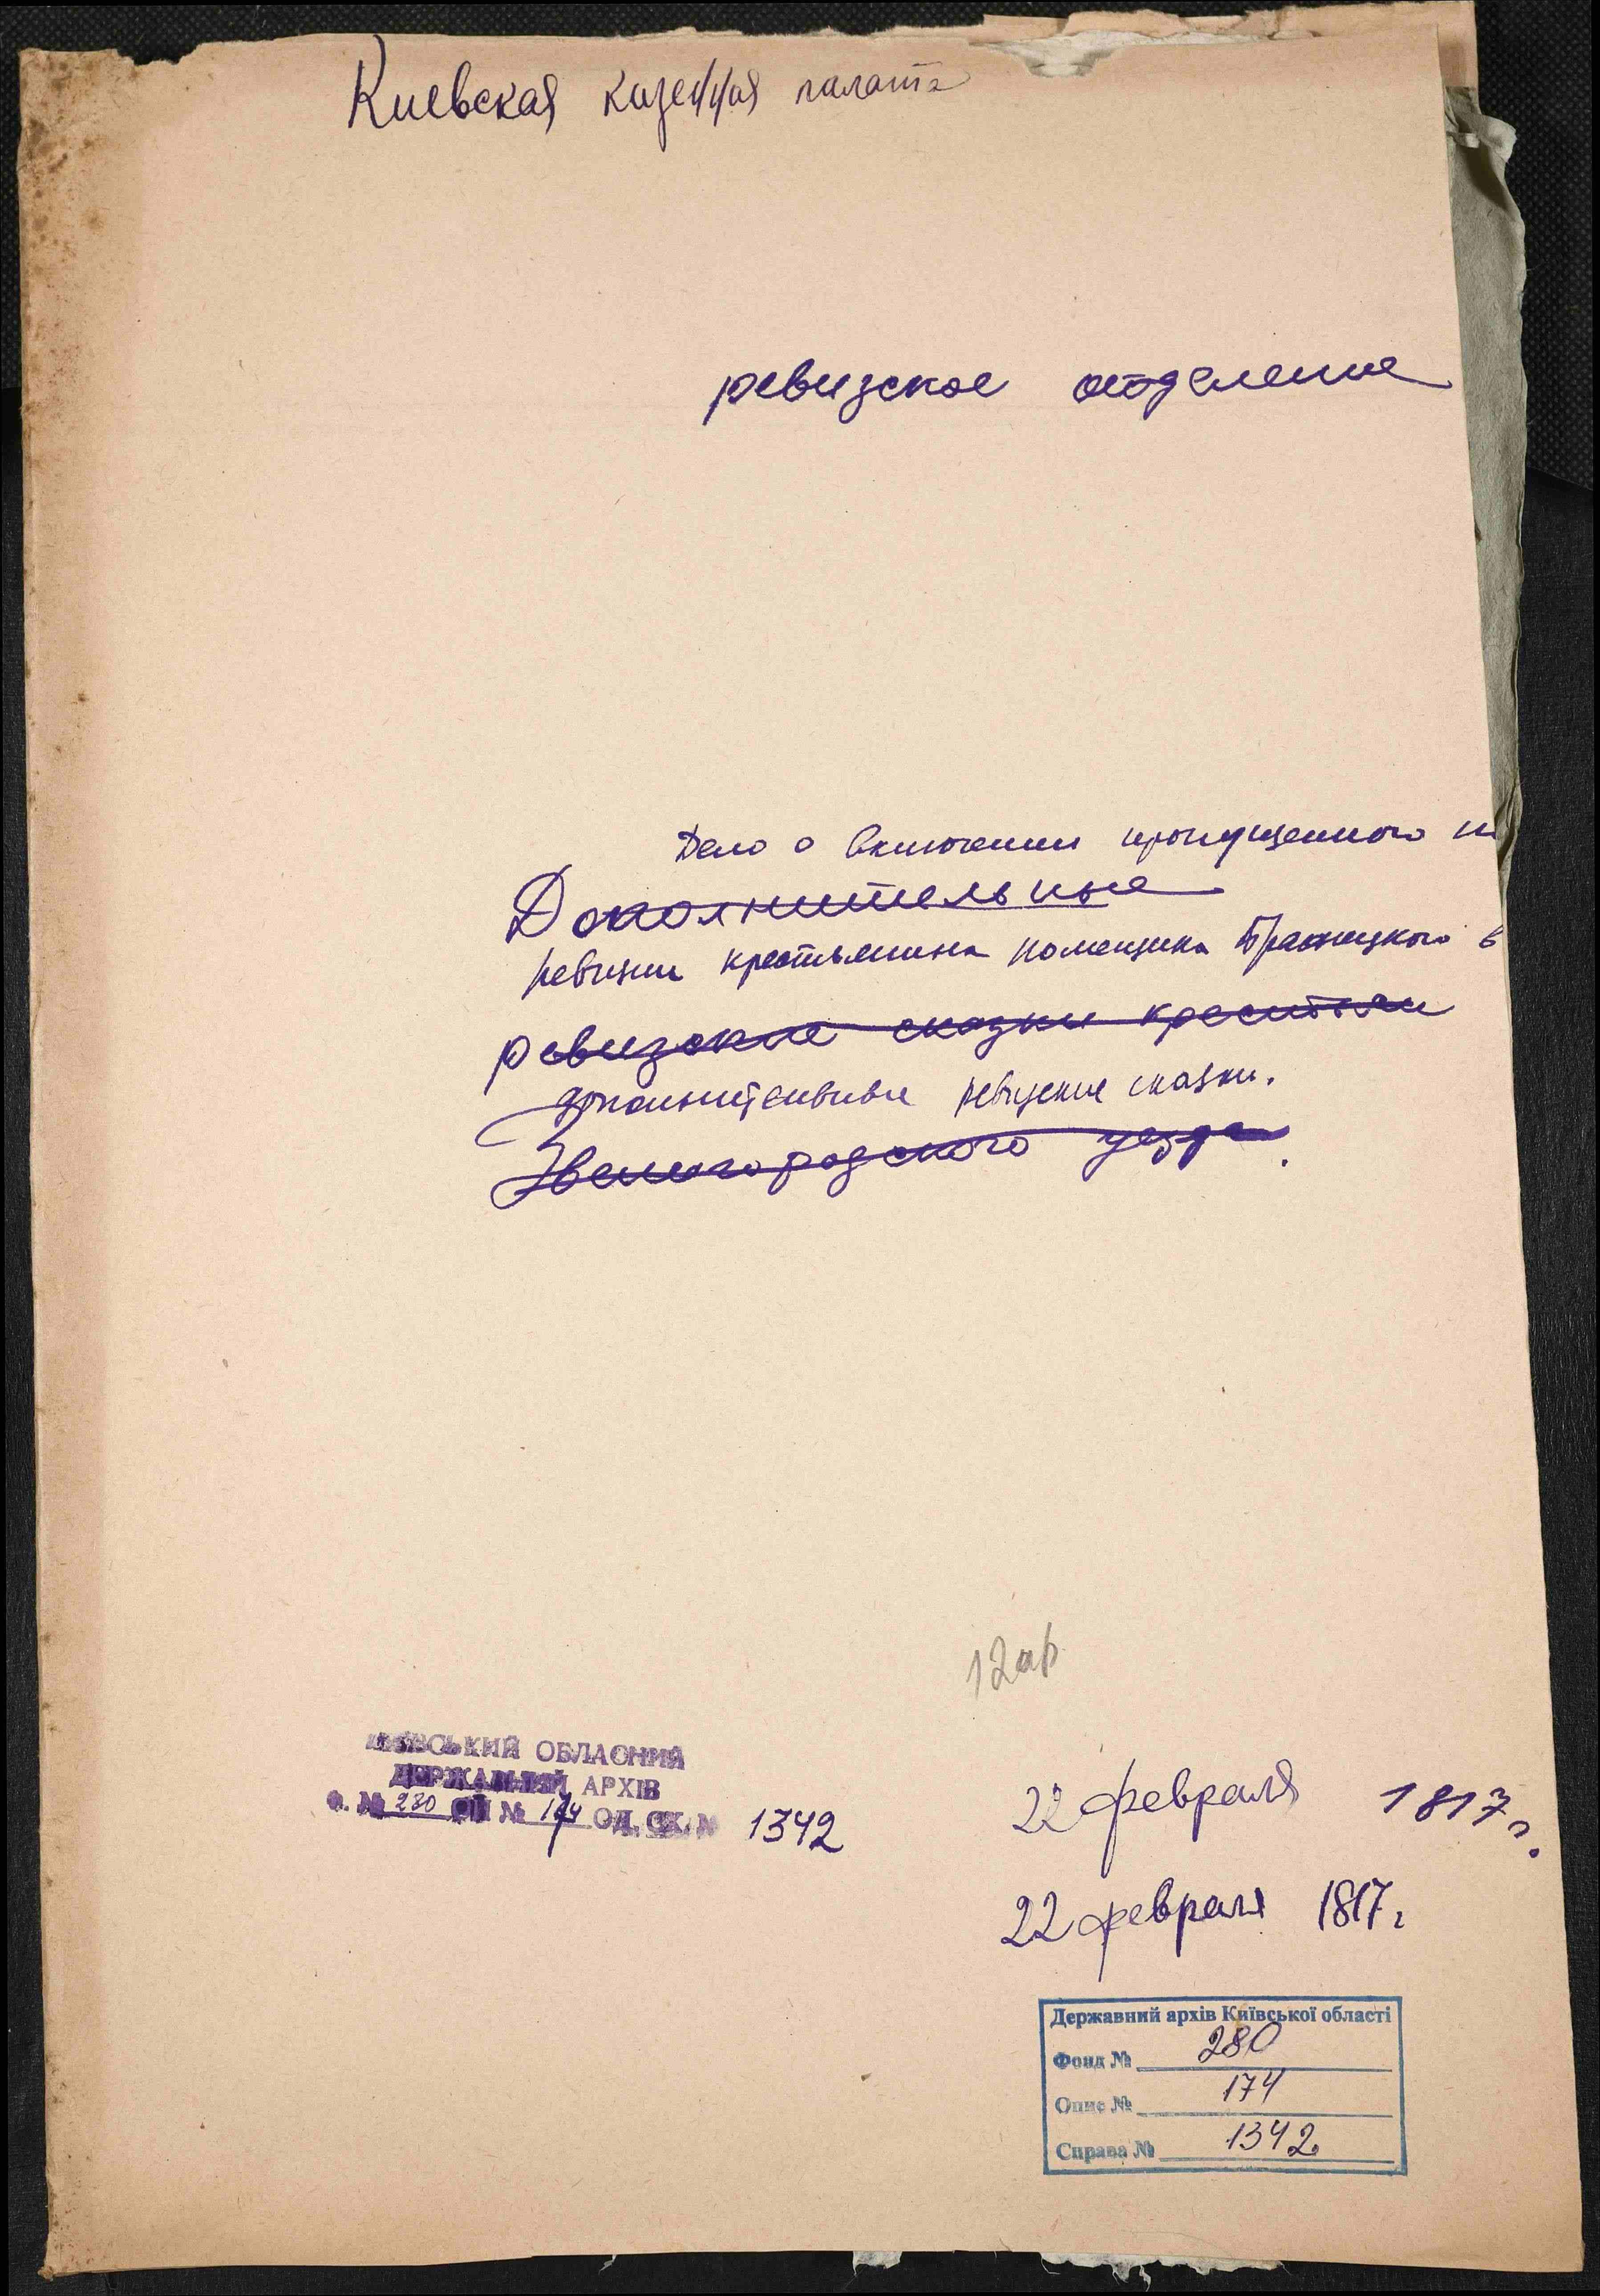 Киевская казенная палата
ревизское отделение
Дело о включении пропущенного п
Дополнительные
ревизии крестьянина помещика Браницкого в
ревизские сказки крестьян
дополнительные ревизские сказки.
Звенигородского уезда.
12
КИЇВСЬКИЙ ОБЛАСНИЙ
ДЕРЖАВНИЙ АРХІВ
Ф. № 280 ОП № 174 ОД. СХ. № 1342
22 февраля 1817 г.
22 февраля 1817 г
Державний архів Київської області
Фонд № 280
Опис № 174
Справа № 1342